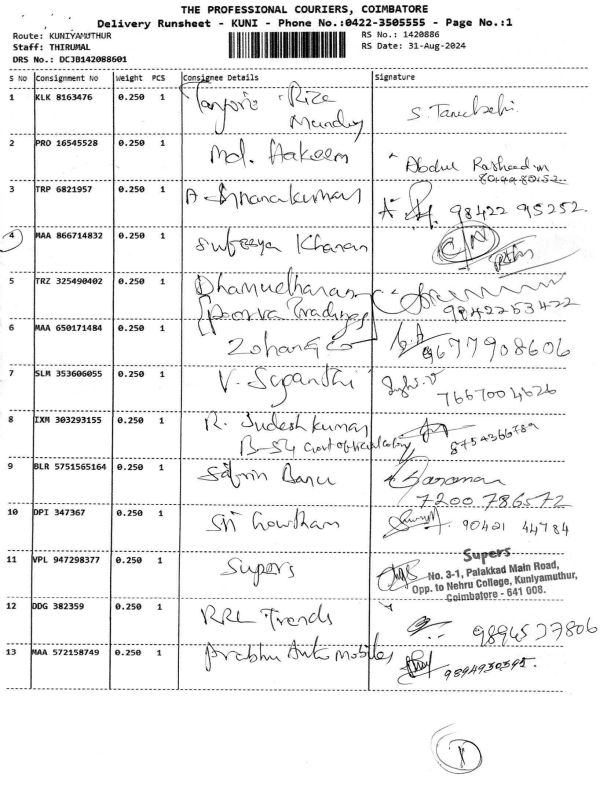 THE PROFESSIONAL COURIERS, COIMBATORE
Delivery Runsheet - KUNI - Phone No.:0422-3505555 - Page No.:1
Route: KUNIYAMUTHUR
RS No.: 1420886
Staff: THIRUMAL
RS Date: 31-Aug-2024
DRS No.: DCJB142088601
S No Consignment No Weight PCS Consignee Details Signature
1 KLK 8163476 0.250 1 Tanjore Rice
Mundy
2 PRO 16545528 0.250 1 Md. Hakeem Abdul
3 TRP 6821957 0.250 1 A. Gnanakumar 98422 95252
4 MAA 866714832 0.250 1 Khanam
5 TRZ 325490402 0.250 1 Dhamudharan
Poorva Tradings 9842253422
6 MAA 650171484 0.250 1 9677908606
7 SLM 353606055 0.250 1 V. 7667004626
8 IXM 303293155 0.250 1 R. Sudesh kumar
B-54 Govt official colony 8754366789
9 BLR 5751565164 0.250 1 Sabrin Banu
7200786572
10 DPI 347367 0.250 1 Sri Gowtham 90421 44784
11 VPL 947298377 0.250 1 Supers
Supers
No. 3-1, Palakkad Main Road,
Opp. to Nehru College, Kuniyamuthur,
Coimbatore - 641 008.
12 DDG 382359 0.250 1 RRL Trends 9894527806
13 MAA 572158749 0.250 1 Prabhu Auto mobiles